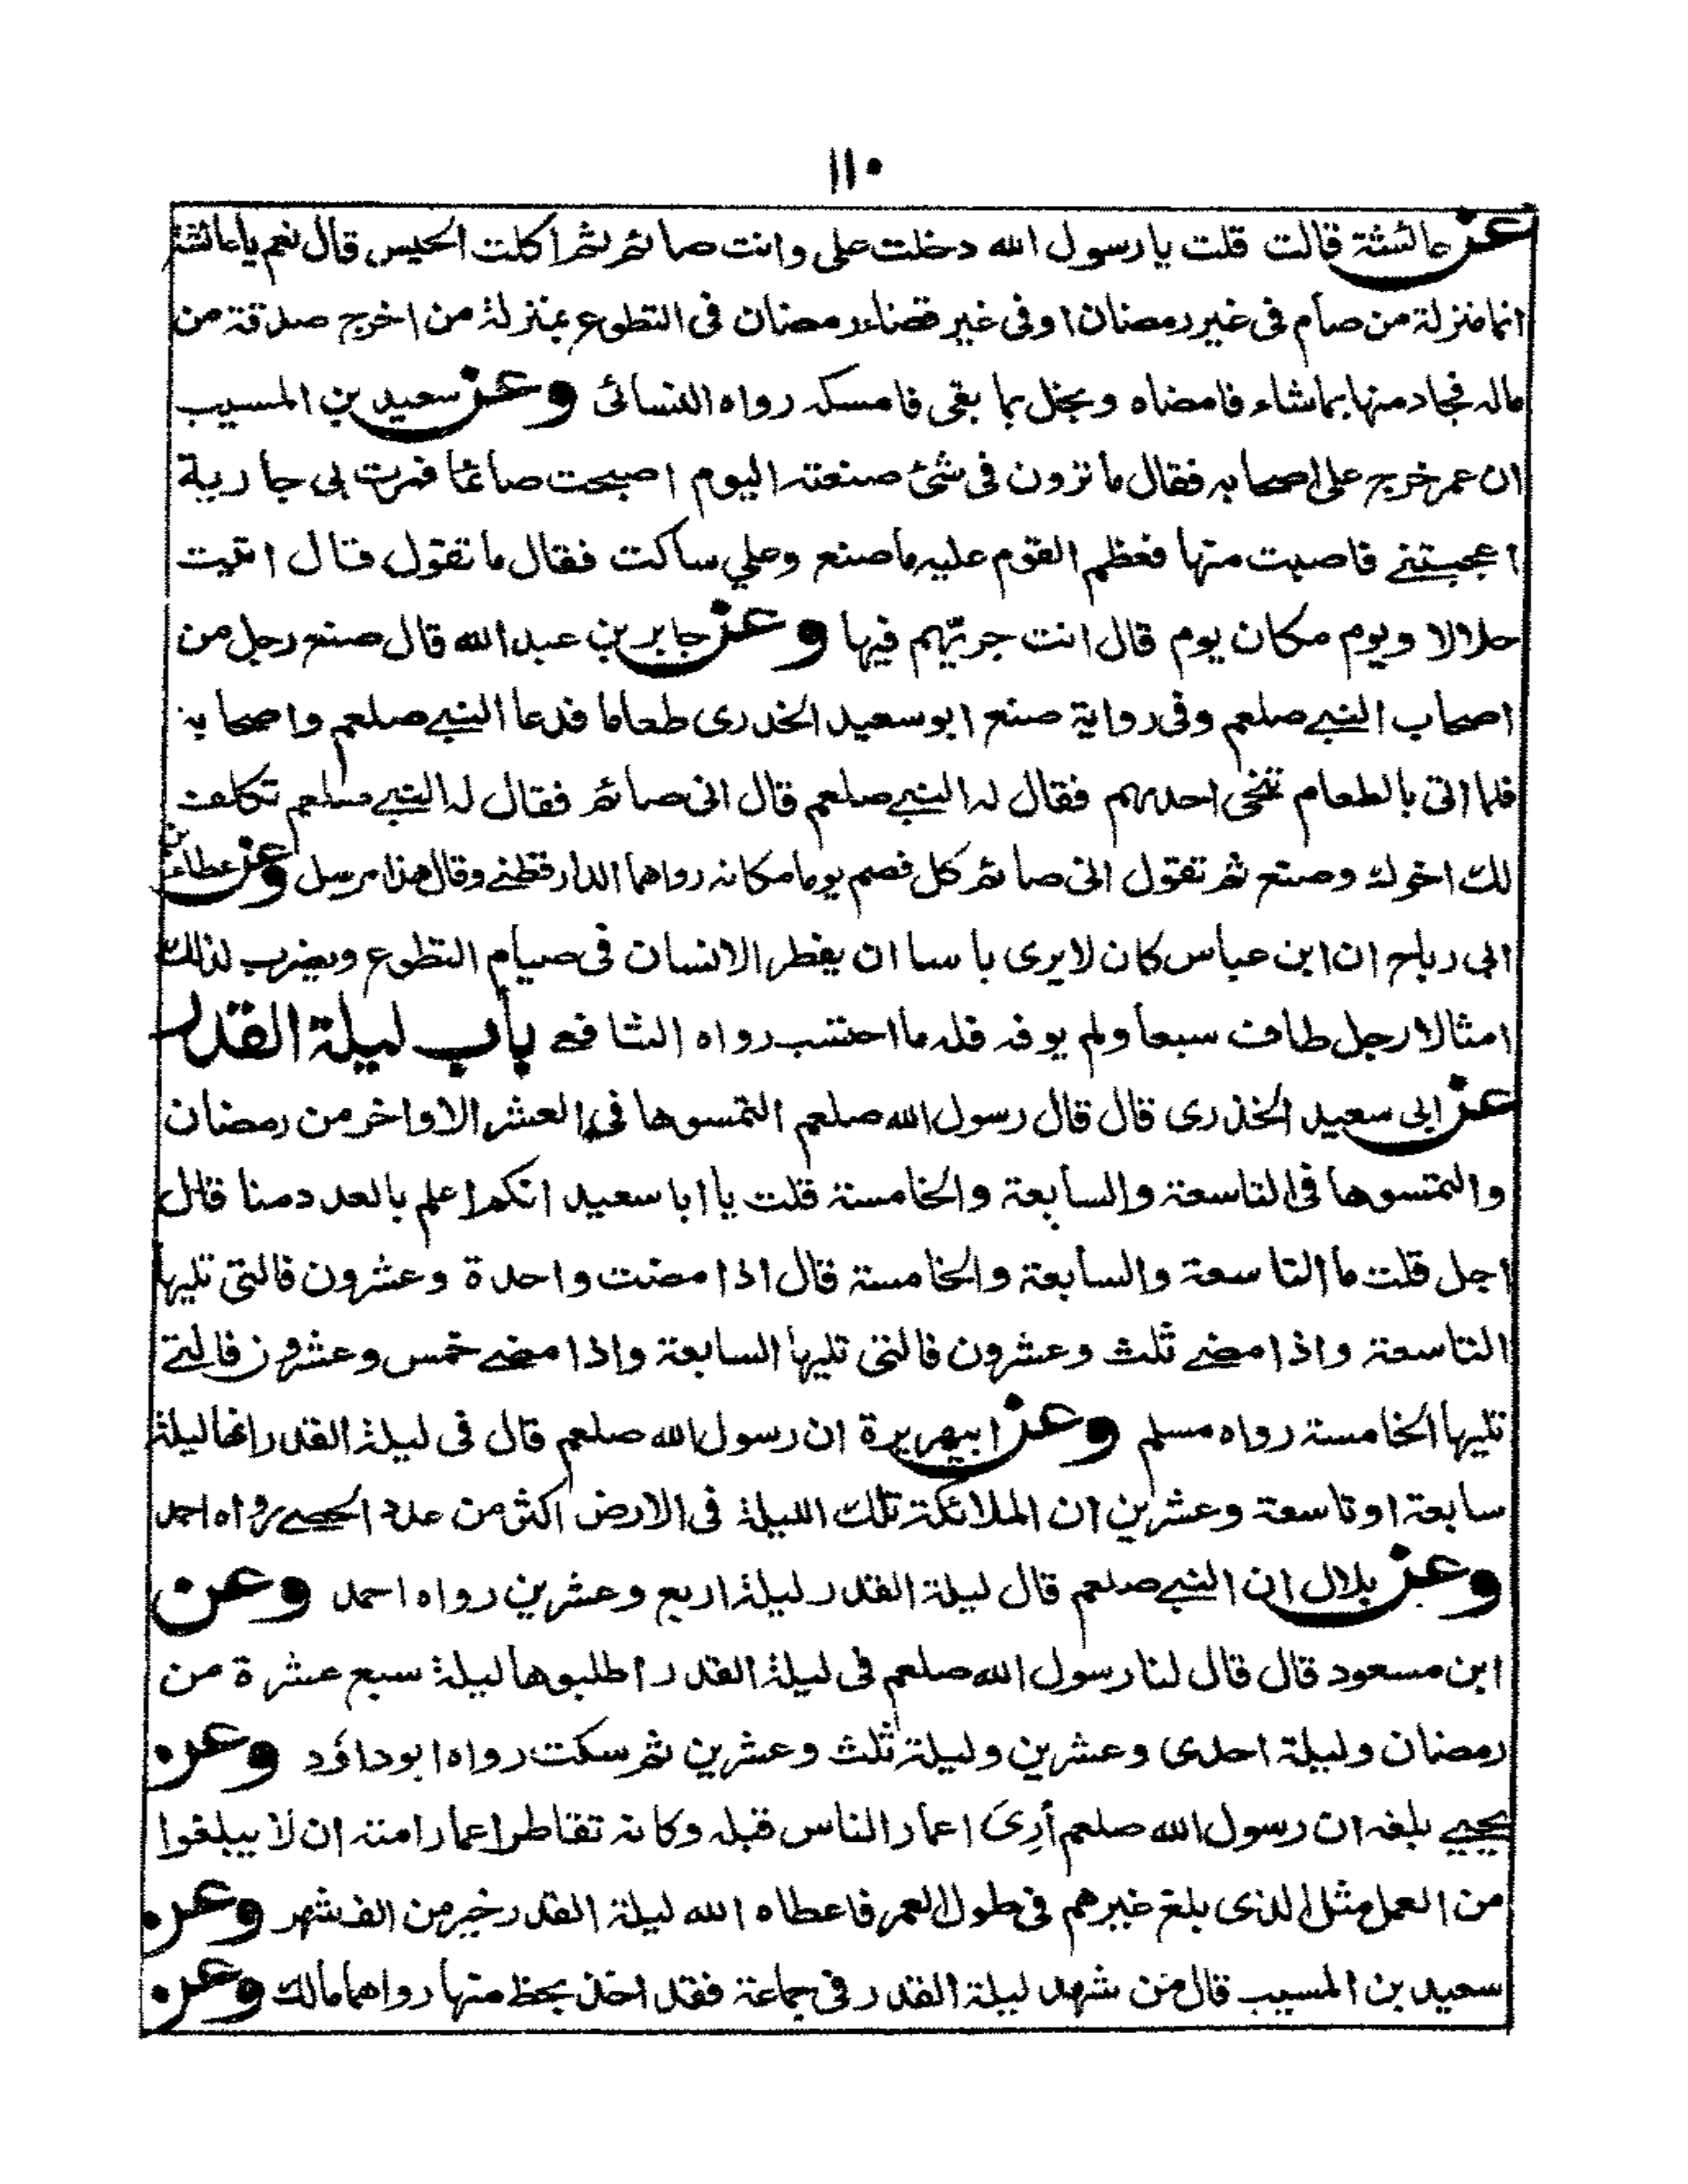 ١١٠
عن عائشة قالت قلت يا رسول الله دخلت على وانت صائم ثم اكلت الحيس قال نعم يا عائشة
انما منزلة من صام فى غير رمضان او فى غير قضاء رمضان فى التطوع بمنزلة من اخرج صدقة من
ماله فجاد منها بما شاء فامضاه وبخل بما بقى فامسكه رواه النسائى وعن سعيد بن المسيب
ان عمر خرج على اصحابه فقال ما ترون فى شئ صنعته اليوم اصبحت صائما فمرت بى جارية
اعجبتنے فاصبت منها فعظم القوم عليه ما صنع وعلي ساكت فقال ما تقول قال اتيت
حلالا ويوم مكان يوم قال انت خيرهم فيها وعن جابر بن عبد الله قال صنع رجل من
اصحاب النبے صلعم وفى رواية صنع ابو سعيد الخدرى طعاما فدعا النبے صلعم واصحابه
فلما اتى بالطعام تنحى احدهم فقال له النبے صلعم قال انى صائم فقال له النبے صلعم تكلف
لك اخوك وصنع ثم تقول انى صائم كل فصم يوما مكانه رواهما الدارقطنے وقال هذا مرسل وعن عطاء بن
ابى رباح ان ابن عباس كان لا يرى باسا ان يفطر الانسان فى صيام التطوع ويضرب لذلك
امثالا رجل طاف سبعا ولم يوفه فله ما احتسب رواه الشافعے باب ليلة القدر
عن ابى سعيد الخذرى قال قال رسول الله صلعم التمسوها فى العشر الاواخر من رمضان
والتمسوها فى التاسعة والسابعة والخامسة قلت يا ابا سعيد انكم اعلم بالعدد منا قال
اجل قلت ما التاسعة والسابعة والخامسة قال اذا مضت واحدة وعشرون فالتى تليها
التاسعة واذا مضے ثلث وعشرون فالتى تليها السابعة واذا مضے خمس وعشرون فالتے
تليها الخامسة رواه مسلم وعن ابيهريرة ان رسول الله صلعم قال فى ليلة القدر انها ليلة
سابعة او تاسعة وعشرين ان الملائكة تلك الليلة فى الارض اكثر من عدد الحصے رواه احمد
وعن بلال ان النبے صلعم قال ليلة القدر ليلة اربع وعشرين رواه احمد وعن
ابن مسعود قال قال لنا رسول الله صلعم فى ليلة القدر اطلبوها ليلة سبع عشرة من
رمضان وليلة احدى وعشرين وليلة ثلث وعشرين ثم سكت رواه ابو داؤد وعن
يحيے بلغه ان رسول الله صلعم أرِىَ اعمار الناس قبله وكانه تقاصر اعمار امته ان لا يبلغوا
من العمل مثل الذى بلغ غيرهم فى طول العمر فاعطاه الله ليلة القدر خير من الف شهر وعن
سعيد بن المسيب قال من شهد ليلة القدر فى جماعة فقد اخذ بحظ منها رواهما مالك وعن